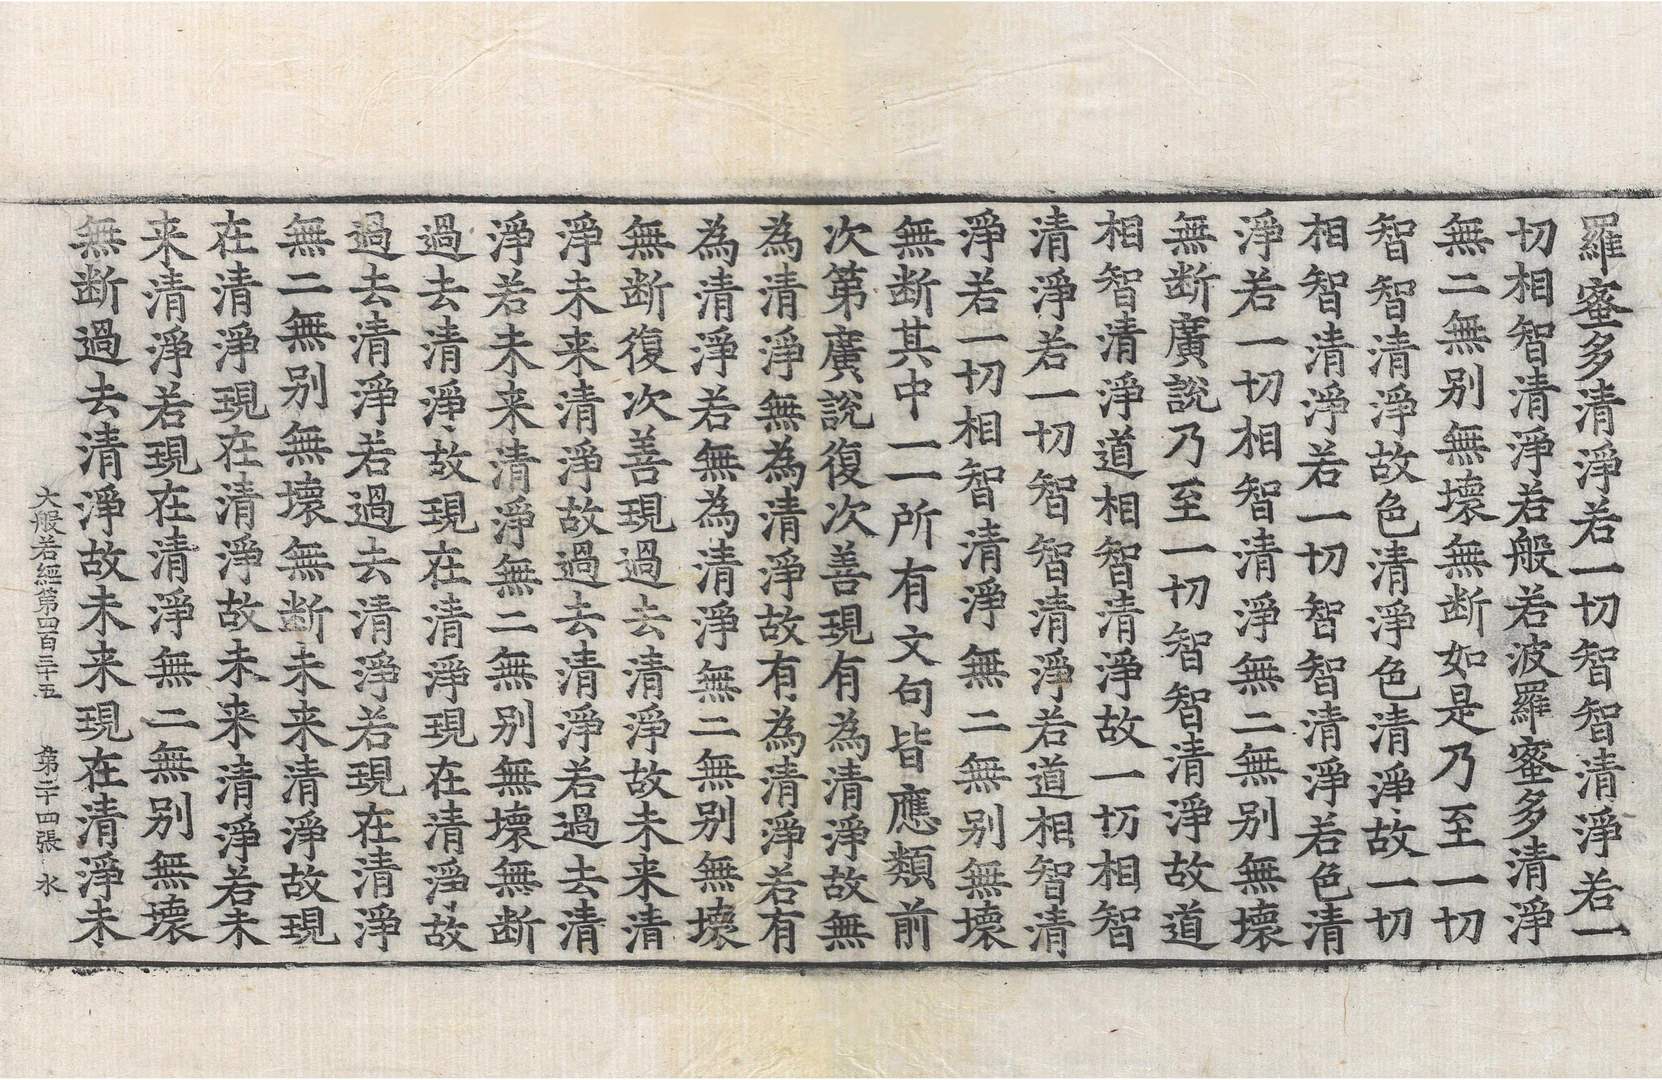 羅蜜多清淨若一切智智清淨若一
切相智清淨若般若波羅蜜多清淨
無二無別無壞無断如是乃至一切
智智清淨故色清淨色清淨故一切
相智清淨若一切智智清淨若色清
淨若一切相智清淨無二無別無壞
無断廣說乃至一切智智清淨故道
相智清淨道相智清淨故一切相智
清淨若一切智智清淨若道相智清
淨若一切相智清淨無二無別無壞
無断其中一一所有文句皆應類前
次第廣說復次善現有為清淨故無
為清淨無為清淨故有為清淨若有
為清淨若無為清淨無二無別無壞
無断復次善現過去清淨故未来清
淨未来清淨故過去清淨若過去清
淨若未来清淨無二無別無壞無断
過去清淨故現在清淨現在清淨故
過去清淨若過去清淨若現在清淨
無二無別無壞無断未来清淨故現
在清淨現在清淨故未来清淨若未
来清淨若現在清淨無二無別無壞
無断過去清淨故未来現在清淨未
大般若經第四百三十五 第二十四張 水